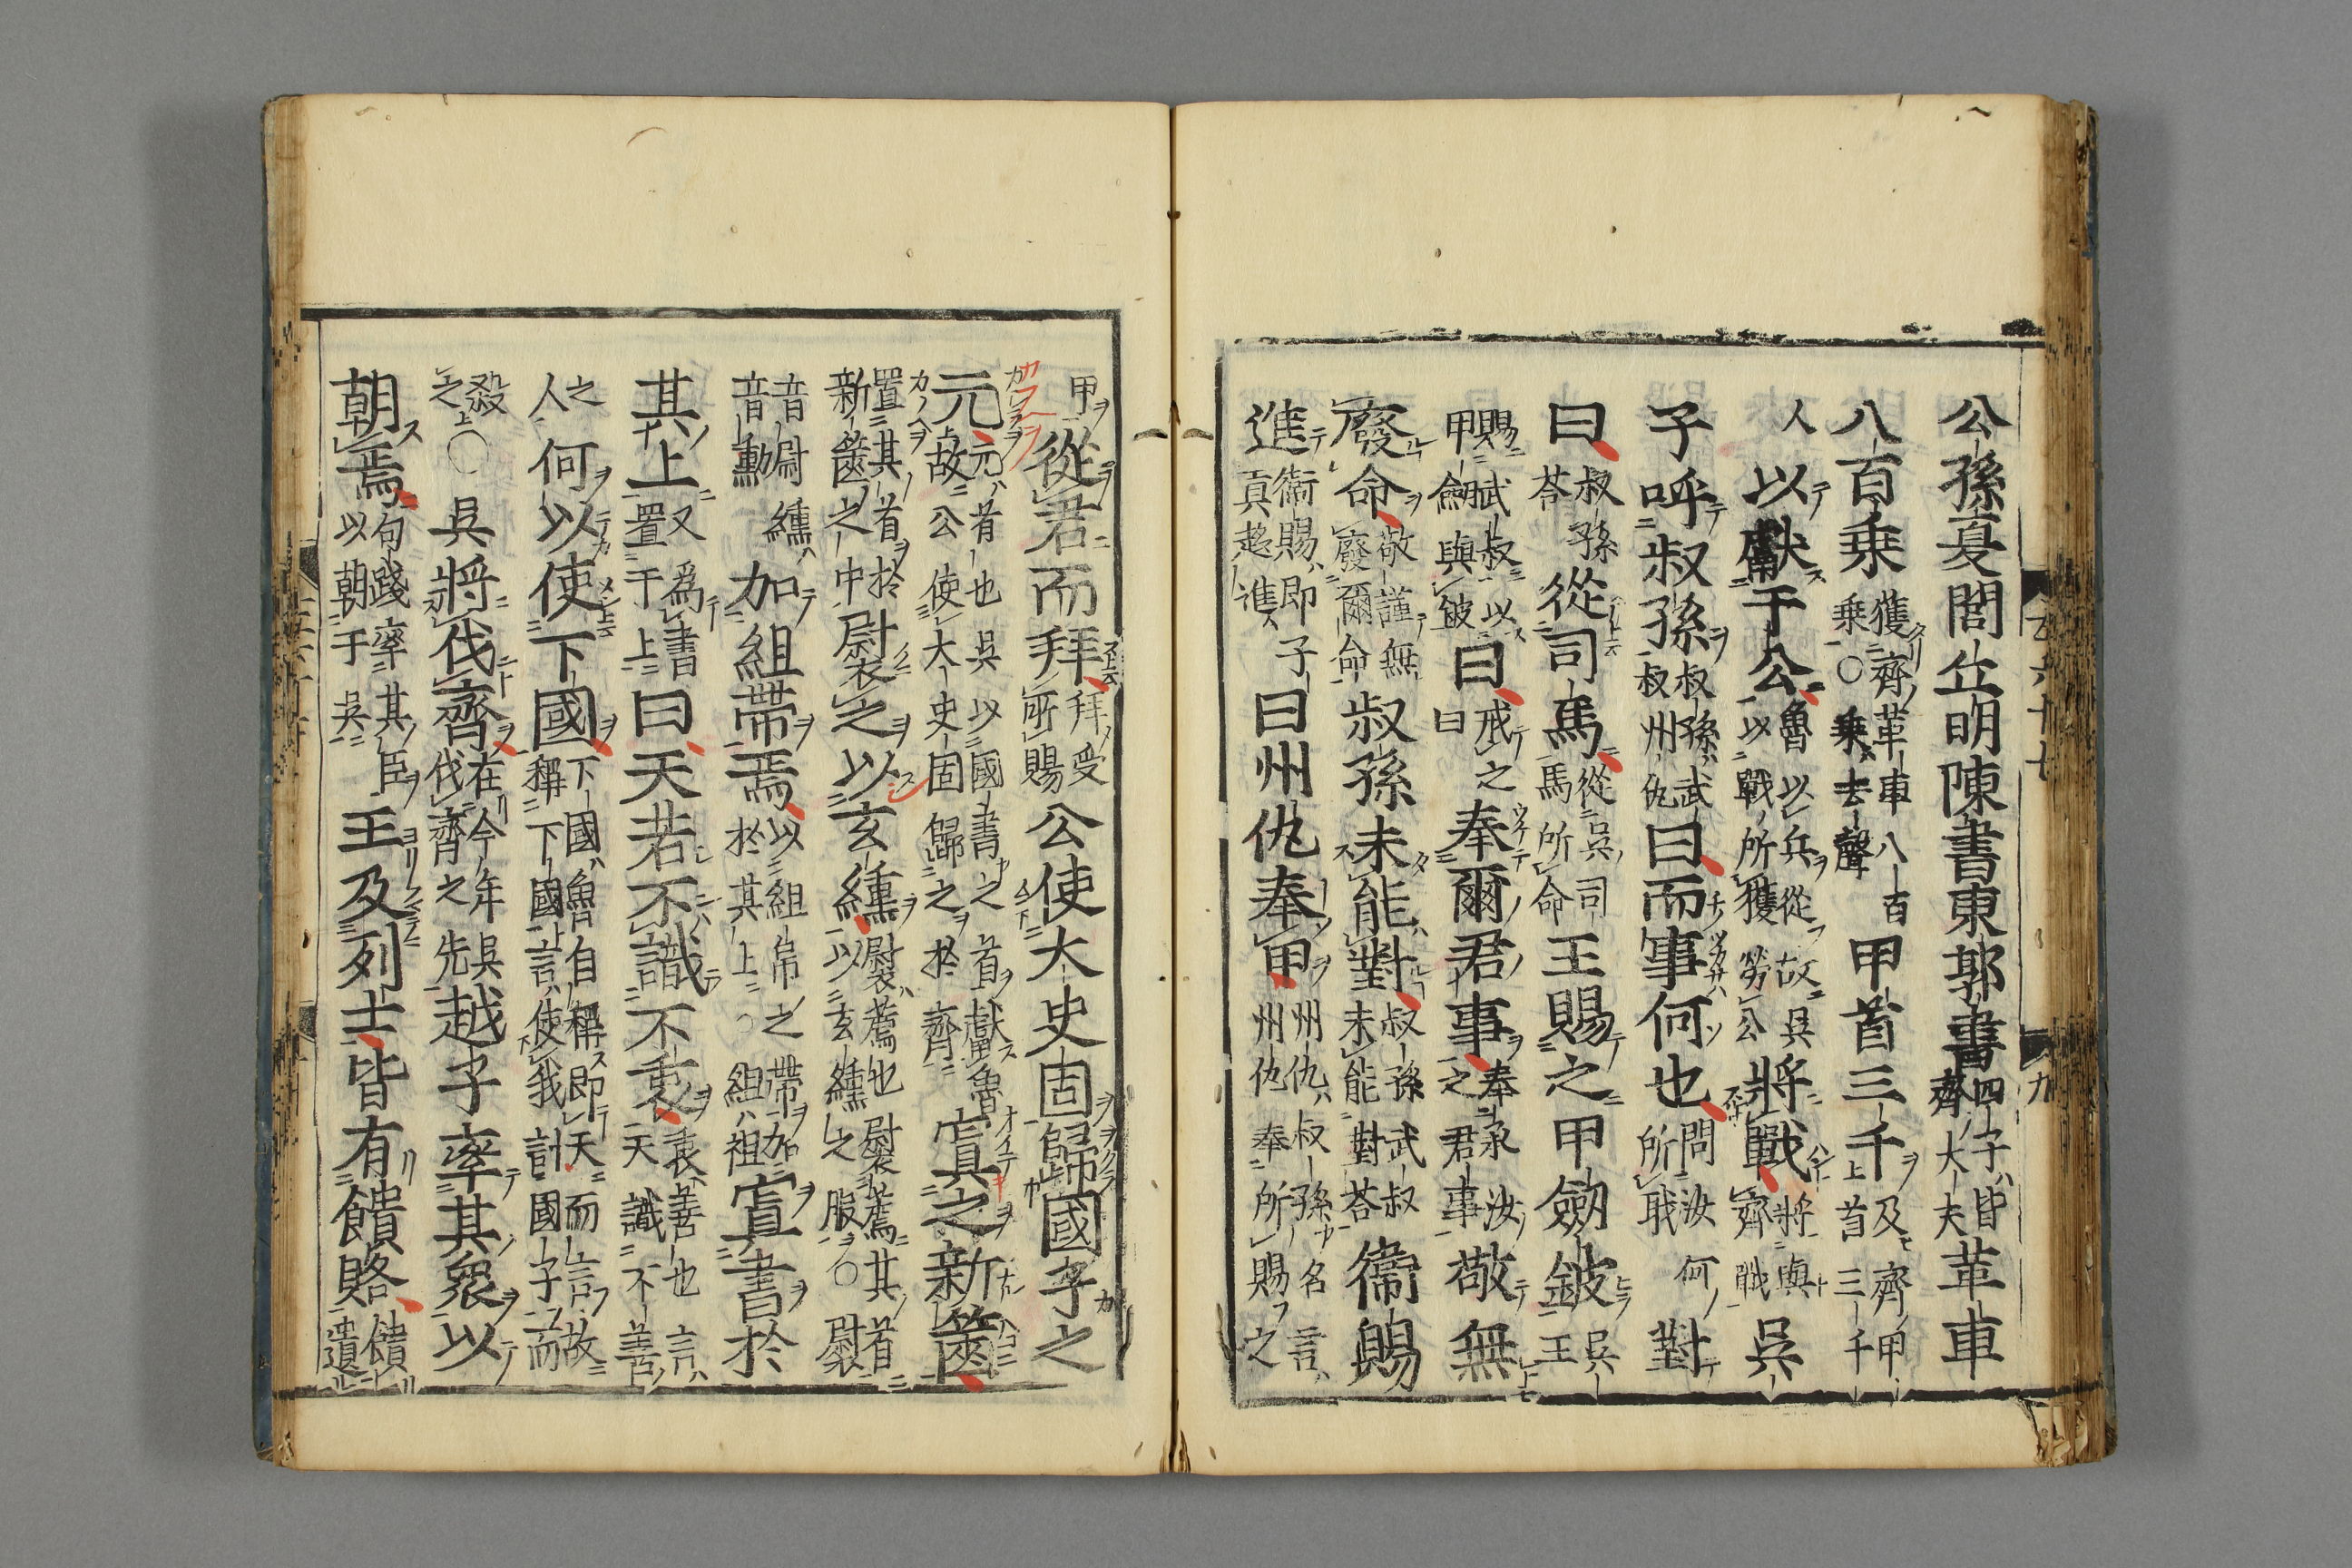 公孫夏閭丘明陳書東郭書四子皆齊大夫革車
八百乘獲齊革車八百乘○乘去聲甲首三千及齊甲首三千
人以獻于公魯以兵從故吳以戰所獲勞公將戰將與齊戰吳
子呼叔孫叔孫武叔州仇曰而事何也問汝何所職對
曰叔孫荅從司馬從吳司馬所命王賜之甲劒鈹吳王
賜武叔以甲劒與鈹曰戒之曰奉爾君事奉承汝之君事敬無
廢命敬謹無廢爾命叔孫未能對叔孫武叔未能對荅衞賜
進衞賜即子貢趍進曰州仇奉甲州仇叔孫名言州仇奉所賜之
甲從君而拜拜受所賜公使大史固歸國子之
元元首也故公使大史固吳以國書之首獻魯歸之於齊寘之新篋
置其首於新篋之中褽之以玄纁褽薦也以玄纁之服薦其首○褽
音尉纁音動加組帶焉以組帛之帶加於其上○組音祖寘書於
其上又爲書置于上曰天若不識不衷衷善也言天識不善之
人何以使下國下國魯自稱即天而言故稱下國言使我討國子而
殺之○吳將伐齊在今年吳伐齊之先越子率其衆以
朝焉句踐率其臣以朝于吳王及列士皆有饋賂饋遺